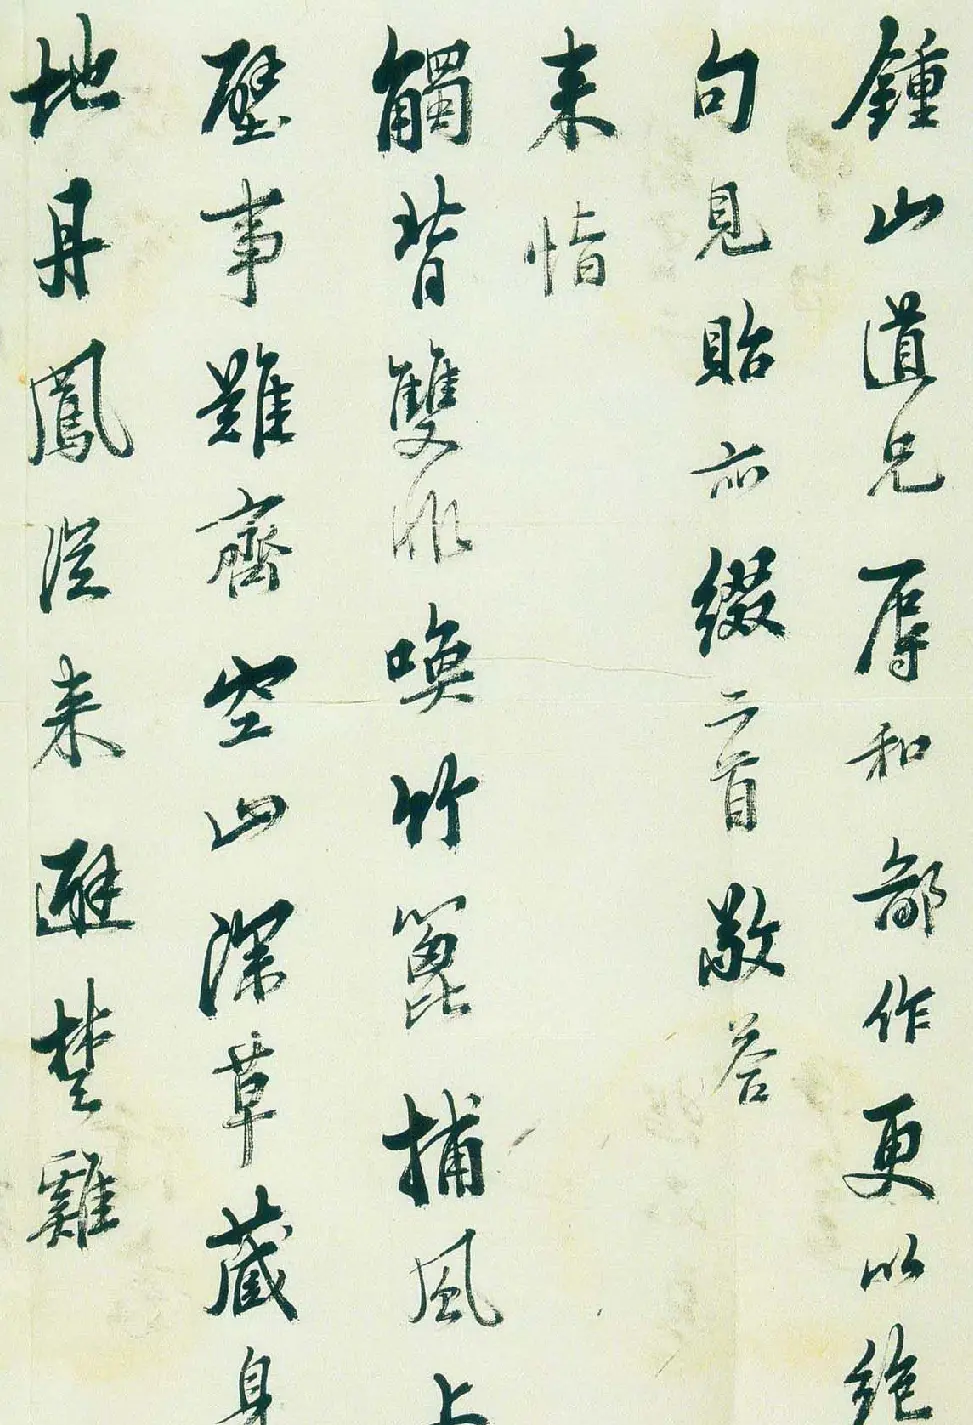 鍾山道兄辱和鄙作更以絶
句見貽亦綴二首敬答
来恉
觸背雙非喚竹篦捕風上
壁事難齊空山深草藏身
地丹鳳從来避楚雞